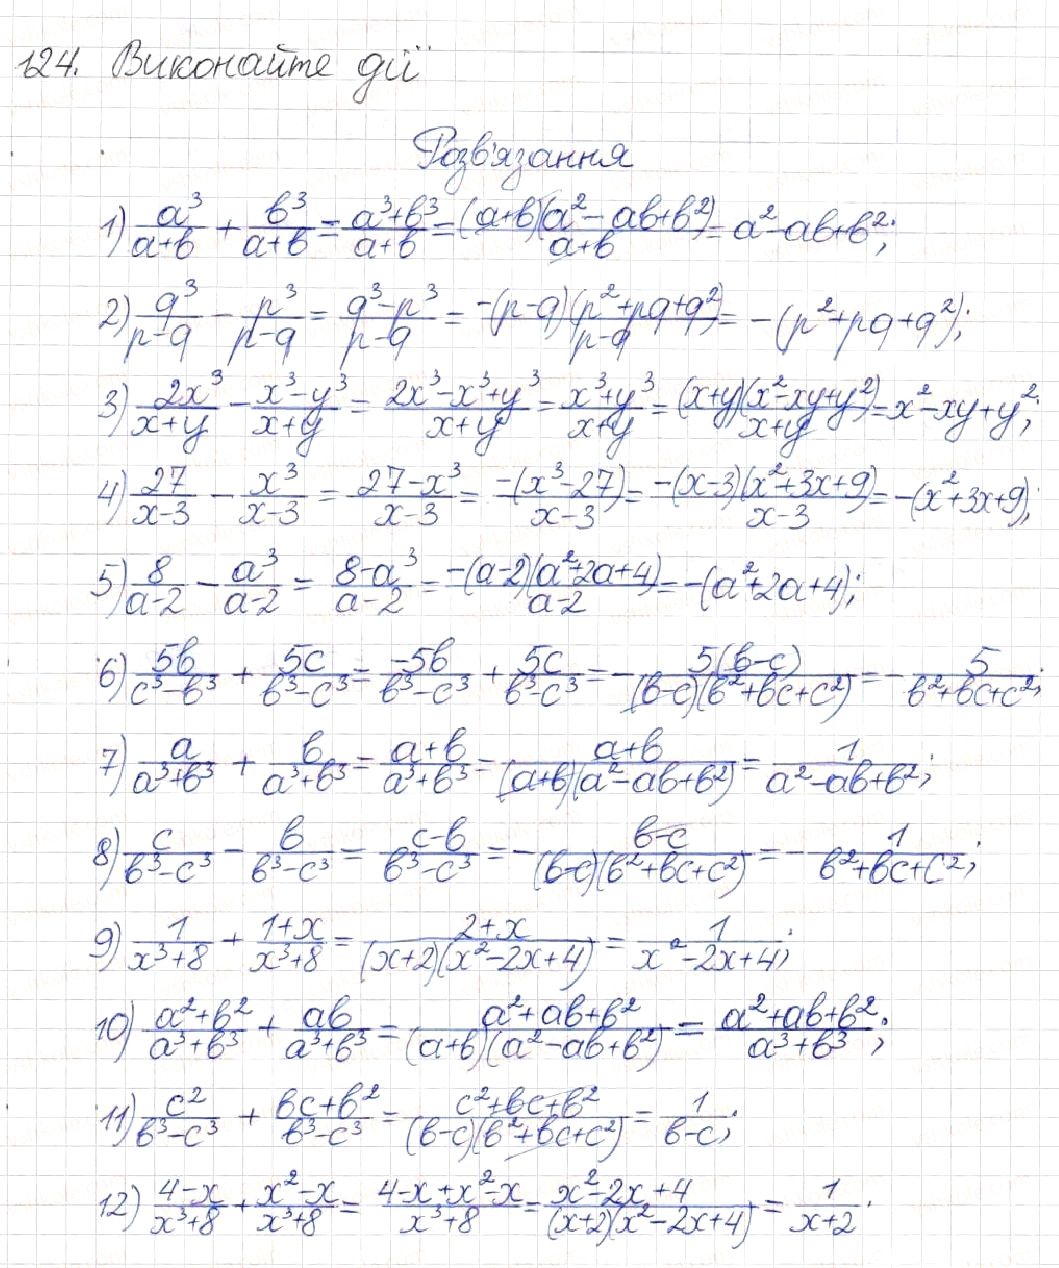 124. Виконайте дії
Розв'язання
1) a³/(a+b) + b³/(a+b) = (a³+b³)/(a+b) = (a+b)(a²-ab+b²)/(a+b) = a²-ab+b²;
2) q³/(p-q) - p³/(p-q) = (q³-p³)/(p-q) = -(p-q)(p²+pq+q²)/(p-q) = -(p²+pq+q²);
3) 2x³/(x+y) - (x³-y³)/(x+y) = (2x³-x³+y³)/(x+y) = (x³+y³)/(x+y) = (x+y)(x²-xy+y²)/(x+y) = x²-xy+y²;
4) 27/(x-3) - x³/(x-3) = (27-x³)/(x-3) = -(x³-27)/(x-3) = -(x-3)(x²+3x+9)/(x-3) = -(x²+3x+9);
5) 8/(a-2) - a³/(a-2) = (8-a³)/(a-2) = -(a-2)(a²+2a+4)/(a-2) = -(a²+2a+4);
6) 5b/(c³-b³) + 5c/(b³-c³) = -5b/(b³-c³) + 5c/(b³-c³) = - 5(b-c)/((b-c)(b²+bc+c²)) = - 5/(b²+bc+c²);
7) a/(a³+b³) + b/(a³+b³) = (a+b)/(a³+b³) = (a+b)/((a+b)(a²-ab+b²)) = 1/(a²-ab+b²);
8) c/(b³-c³) - b/(b³-c³) = (c-b)/(b³-c³) = - (b-c)/((b-c)(b²+bc+c²)) = - 1/(b²+bc+c²);
9) 1/(x³+8) + (1+x)/(x³+8) = (2+x)/((x+2)(x²-2x+4)) = 1/(x²-2x+4);
10) (a²+b²)/(a³+b³) + ab/(a³+b³) = (a²+ab+b²)/((a+b)(a²-ab+b²)) = (a²+ab+b²)/(a³+b³);
11) c²/(b³-c³) + (bc+b²)/(b³-c³) = (c²+bc+b²)/((b-c)(b²+bc+c²)) = 1/(b-c);
12) (4-x)/(x³+8) + (x²-x)/(x³+8) = (4-x+x²-x)/(x³+8) = (x²-2x+4)/((x+2)(x²-2x+4)) = 1/(x+2).